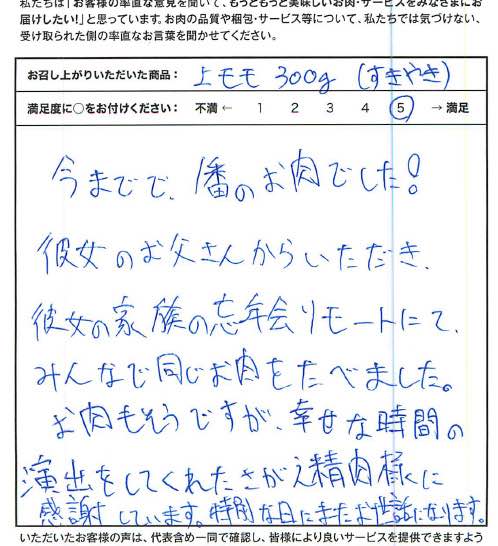 私たちは「お客様の率直な意見を聞いて、もっともっと美味しいお肉・サービスをみなさまにお
届けしたい!」と思っています。お肉の品質や梱包・サービス等について、私たちでは気づけない、
受け取られた側の率直なお言葉を聞かせてください。
お召し上がりいただいた商品: 上モモ 300g (すきやき)
満足度に○をお付けください: 不満 ← 1 2 3 4 5 → 満足
今までで、1番のお肉でした!
彼女のお父さんからいただき、
彼女の家族の忘年会リモートにて、
みんなで同じお肉をたべました。
お肉もそうですが、幸せな時間の
演出をしてくれたさがえ精肉様に
感謝しています。特別な日にまたお世話になります。
いただいたお客様の声は、代表含め一同で確認し、皆様により良いサービスを提供できますよう